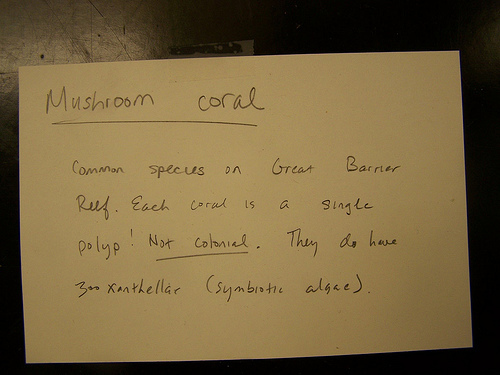 Mushroom coral
Common species on Great Barrier
Reef. Each coral is a single
polyp! Not colonial. They do have
zooxanthellae (symbiotic algae).